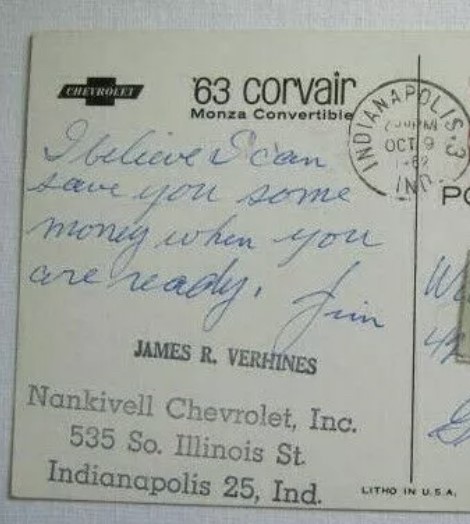 CHEVROLET
'63 corvair
Monza Convertible
I believe I can
save you some
money when you
are ready.
Jim
JAMES R. VERHINES
Nankivell Chevrolet, Inc.
535 So. Illinois St.
Indianapolis 25, Ind.
INDIANAPOLIS 3
PM
OCT 9
1962
IND.
PO
LITHO IN U.S.A.